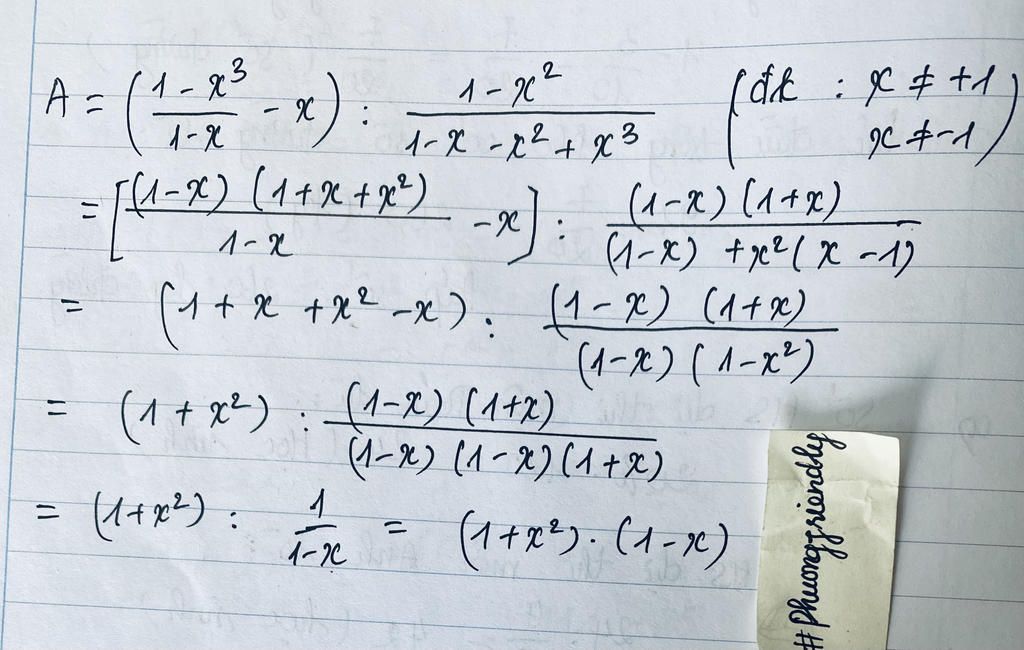 A = ( (1 - x³)/(1 - x) - x ) : (1 - x²)/(1 - x - x² + x³) ( đk : x ≠ +1
x ≠ -1 )
= [ (1 - x) (1 + x + x²)/(1 - x) - x ] : (1 - x) (1 + x)/((1 - x) + x² (x - 1))
= (1 + x + x² - x) : (1 - x) (1 + x)/((1 - x) (1 - x²))
= (1 + x²) : (1 - x) (1 + x)/((1 - x) (1 - x) (1 + x))
= (1 + x²) : 1/(1 - x) = (1 + x²) . (1 - x)
#phuongfriendly